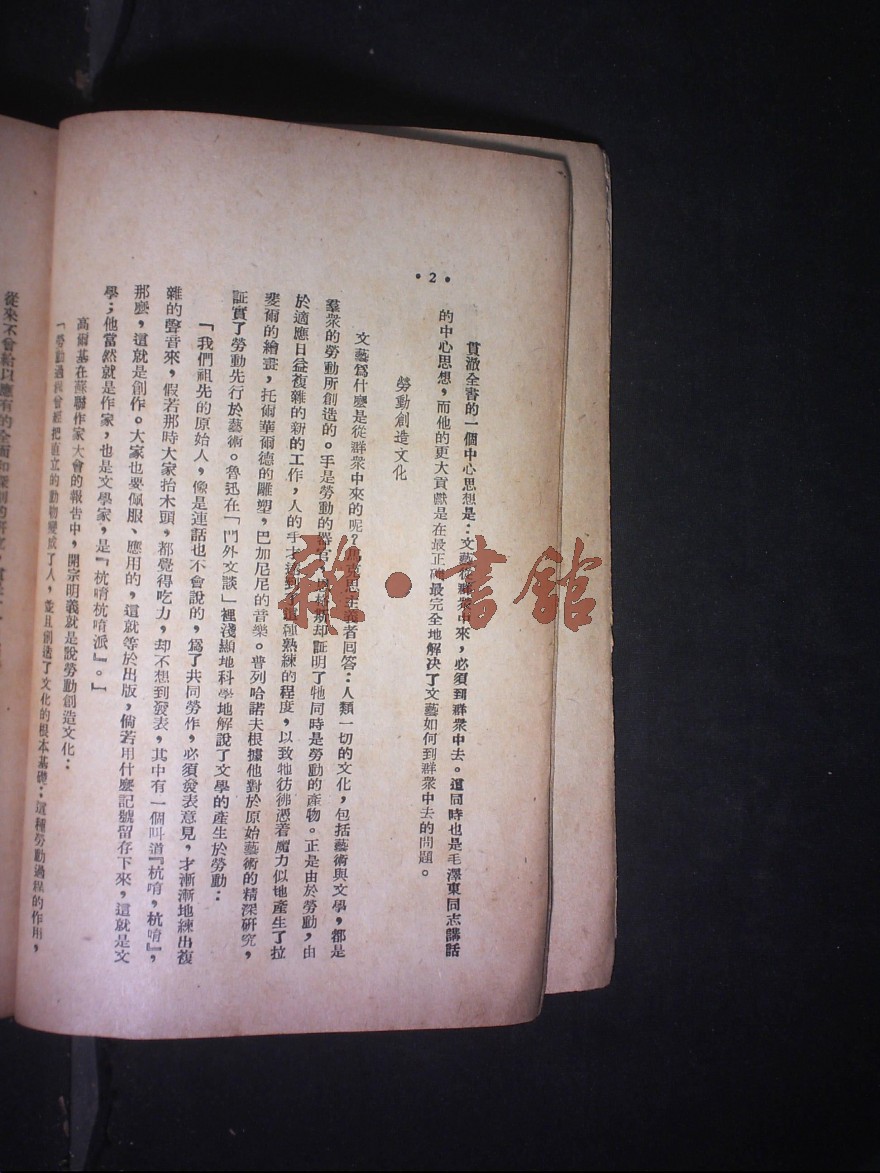 •2•
貫澈全書的一個中心思想是：文藝從群衆中來，必須到群衆中去。這同時也是毛澤東同志講話
的中心思想，而他的更大貢獻是在最正確最完全地解决了文藝如何到群衆中去的問題。
勞動創造文化
文藝爲什麽是從群衆中來的呢？馬克思主義者回答：人類一切的文化，包括藝術與文學，都是
羣衆的勞動所創造的。手是勞動的器官，恩格斯却証明了牠同時是勞動的產物。正是由於勞動，由
於適應日益複雜的新的工作，人的手才達到了這種熟練的程度，以致牠彷彿憑着魔力似地產生了拉
斐爾的繪畫，托爾華爾德的雕塑，巴加尼尼的音樂。普列哈諾夫根據他對於原始藝術的精深研究，
証實了勞動先行於藝術。魯迅在「門外文談」裡淺顯地科學地解說了文學的產生於勞動：
「我們祖先的原始人，像是連話也不會說的，爲了共同勞作，必須發表意見，才漸漸地練出複
雜的聲音來，假若那時大家抬木頭，都覺得吃力，却不想到發表，其中有一個叫道『杭唷，杭唷』，
那麽，這就是創作。大家也要佩服、應用的，這就等於出版，倘若用什麽記號留存下來，這就是文
學；他當然就是作家，也是文學家，是『杭唷杭唷派』。」
高爾基在蘇聯作家大會的報告中，開宗明義就是說勞動創造文化：
「勞動過程曾經把直立的動物變成了人，並且創造了文化的根本基礎：這種勞動過程的作用，
從來不會給以應有的全面和深刻的研究
雜•書館